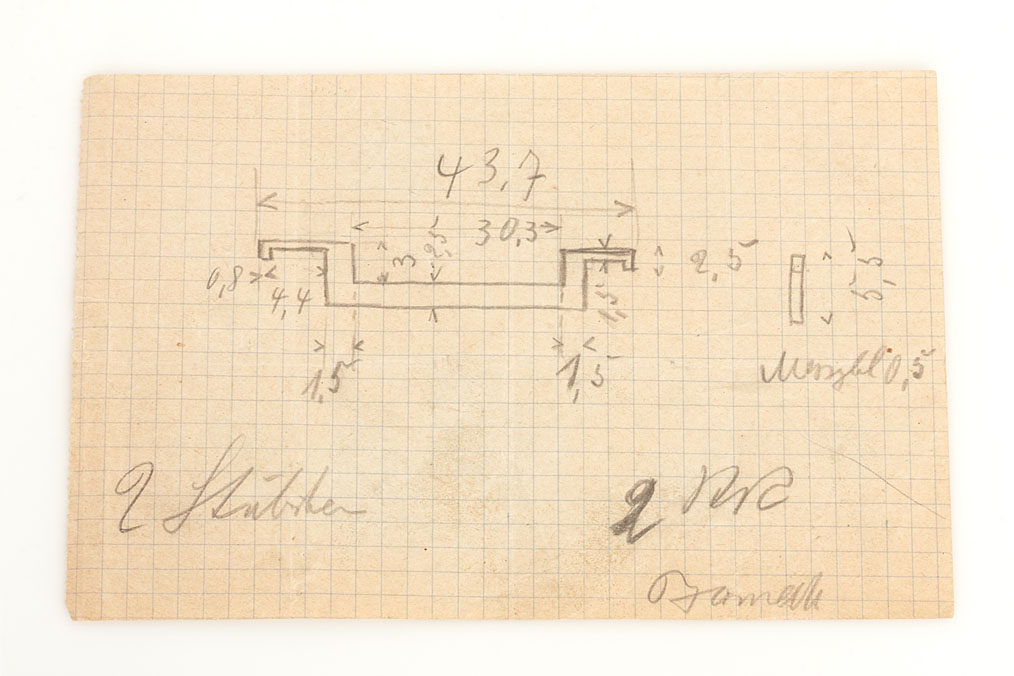 43,7
30,3
3
2,5
2,5
5,5
0,8
4,4
1,5
1,5
1,5
0,5
2
2